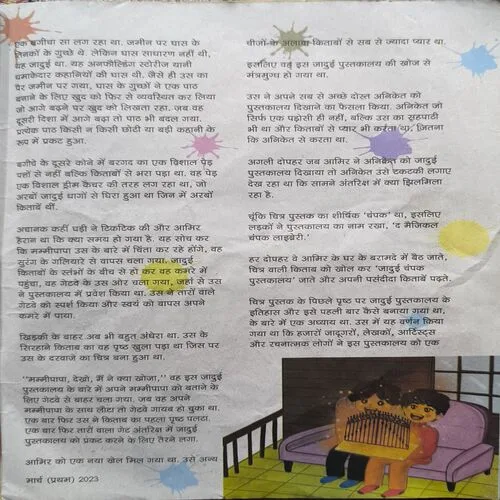 एक बगीचा सा लग रहा था. जमीन पर घास के
तिनकों के गुच्छे थे. लेकिन घास साधारण नहीं थी,
यह जादुई था. यह अनफोल्डिंग स्टोरीज यानी
धमाकेदार कहानियों की घास थी. जैसे ही उस का
पैर जमीन पर गया, घास के गुच्छों ने एक पाठ
बनाने के लिए खुद को फिर से व्यवस्थित कर लिया
जो आगे बढ़ने पर खुद को लिखता रहा. जब वह
दूसरी दिशा में आगे बढ़ा तो पाठ भी बदल गया.
प्रत्येक पाठ किसी न किसी छोटी या बड़ी कहानी के
रूप में प्रकट हुआ.
बगीचे के दूसरे कोने में बरगद का एक विशाल पेड़
पत्तों से नहीं बल्कि किताबों से भरा पड़ा था. वह पेड़
एक विशाल ड्रीम कैचर की तरह लग रहा था, जो
अरबों जादुई धागों से घिरा हुआ था जिन में अरबों
किताबें थीं.
अचानक कहीं घड़ी ने टिकटिक की और आमिर
हैरान था कि क्या समय हो गया है. यह सोच कर
कि मम्मीपापा उस के बारे में चिंता कर रहे होंगे, वह
सुरंग के गलियारे से वापस चला गया. जादुई
किताबों के स्तंभों के बीच से हो कर वह कमरे में
पहुंचा, वह गेटवे के उस ओर चला गया, जहां से उस
ने पुस्तकालय में प्रवेश किया था. उस ने तारों वाले
गेटवे को स्पर्श किया और स्वयं को वापस अपने
कमरे में पाया.
खिड़की के बाहर अब भी बहुत अंधेरा था. उस के
सिरहाने किताब का वह पृष्ठ खुला पड़ा था जिस पर
उस के दरवाजे का चित्र बना हुआ था.
"मम्मीपापा, देखो, मैं ने क्या खोजा," वह इस जादुई
पुस्तकालय के बारे में अपने मम्मीपापा को बताने के
लिए गेटवे से बाहर चला गया. जब वह अपने
मम्मीपापा के साथ लौटा तो गेटवे गायब हो चुका था.
एक बार फिर उस ने किताब का पहला पृष्ठ पलटा.
एक बार फिर तारों वाला गेट अंतरिक्ष में जादुई
पुस्तकालय को प्रकट करने के लिए तैरने लगा.
आमिर को एक नया खेल मिल गया था. उसे अन्य
मार्च (प्रथम) 2023
चीजों के अलावा किताबों से सब से ज्यादा प्यार था.
इसलिए वह इस जादुई पुस्तकालय की खोज से
मंत्रमुग्ध हो गया था.
उस ने अपने सब से अच्छे दोस्त अनिकेत को
पुस्तकालय दिखाने का फैसला किया. अनिकेत जो
सिर्फ एक पड़ोसी ही नहीं, बल्कि उस का सहपाठी
भी था और किताबों से प्यार भी करता था, जितना
कि अनिकेत से करता था.
अगली दोपहर जब आमिर ने अनिकेत को जादुई
पुस्तकालय दिखाया तो अनिकेत उसे टकटकी लगाए
देख रहा था कि सामने अंतरिक्ष में क्या झिलमिला
रहा है.
चूंकि चित्र पुस्तक का शीर्षक 'चंपक' था, इसलिए
लड़कों ने पुस्तकालय का नाम रखा, 'द मैजिकल
चंपक लाइब्रेरी.'
हर दोपहर वे आमिर के घर के बरामदे में बैठ जाते,
चित्र वाली किताब को खोल कर 'जादुई चंपक
पुस्तकालय' जाते और अपनी पसंदीदा किताबें पढ़ते.
चित्र पुस्तक के पिछले पृष्ठ पर जादुई पुस्तकालय के
इतिहास और इसे पहली बार कैसे बनाया गया था,
के बारे में एक अध्याय था. उस में यह वर्णन किया
गया था कि हजारों जादूगरों, लेखकों, आर्टिस्ट्स
और रचनात्मक लोगों ने इस पुस्तकालय को एक